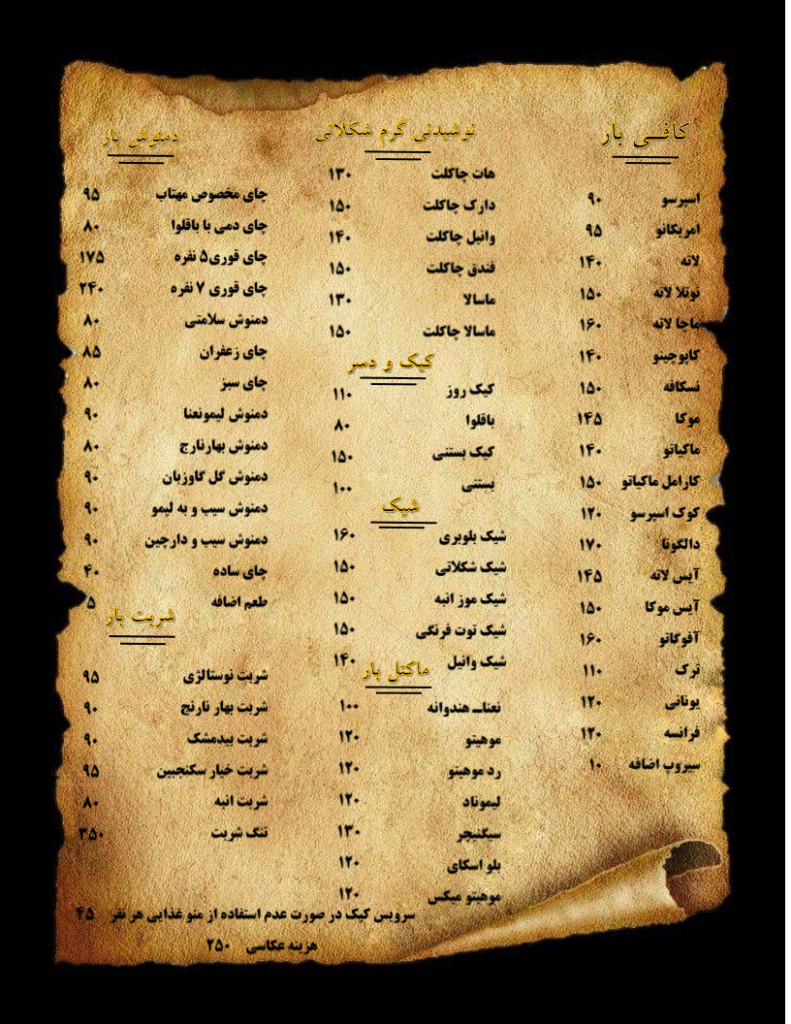 کافی بار
اسپرسو ۹۰
امریکانو ۹۵
لاته ۱۴۰
نوتلا لاته ۱۵۰
ماچا لاته ۱۶۰
کاپوچینو ۱۴۰
نسکافه ۱۵۰
موکا ۱۴۵
ماکیاتو ۱۴۰
کارامل ماکیاتو ۱۵۰
کوک اسپرسو ۱۲۰
دالگونا ۱۷۰
آیس لاته ۱۴۵
آیس موکا ۱۵۰
آفوگاتو ۱۶۰
ترک ۱۱۰
یونانی ۱۲۰
فرانسه ۱۲۰
سیروپ اضافه ۱۰
نوشیدنی گرم شکلاتی
هات چاکلت ۱۳۰
دارک چاکلت ۱۵۰
وانیل چاکلت ۱۴۰
فندق چاکلت ۱۵۰
ماسالا ۱۳۰
ماسالا چاکلت ۱۵۰
کیک و دسر
کیک روز ۱۱۰
باقلوا ۸۰
کیک بستنی ۱۵۰
بستنی ۱۰۰
شیک
شیک بلوبری ۱۶۰
شیک شکلاتی ۱۵۰
شیک موز انبه ۱۵۰
شیک توت فرنگی ۱۵۰
شیک وانیل ۱۴۰
ماکتل بار
نعناـ هندوانه ۱۰۰
موهیتو ۱۲۰
رد موهیتو ۱۲۰
لیموناد ۱۲۰
سیگنیچر ۱۳۰
بلو اسکای ۱۲۰
موهیتو میکس ۱۲۰
دمنوش بار
چای مخصوص مهتاب ۹۵
چای دمی با باقلوا ۸۰
چای قوری۵ نفره ۱۷۵
چای قوری ۷ نفره ۲۴۰
دمنوش سلامتی ۸۰
چای زعفران ۸۵
چای سبز ۸۰
دمنوش لیمونعنا ۹۰
دمنوش بهارنارج ۸۰
دمنوش گل گاوزبان ۹۰
دمنوش سیب و به لیمو ۹۰
دمنوش سیب و دارچین ۹۰
چای ساده ۴۰
طعم اضافه ۵
شربت بار
شربت نوستالژی ۹۵
شربت بهار نارنج ۹۰
شربت بیدمشک ۹۰
شربت خیار سکنجبین ۹۵
شربت انبه ۸۰
تنگ شربت ۳۵۰
سرویس کیک در صورت عدم استفاده از منو غذایی هر نفر ۴۵
هزینه عکاسی ۲۵۰